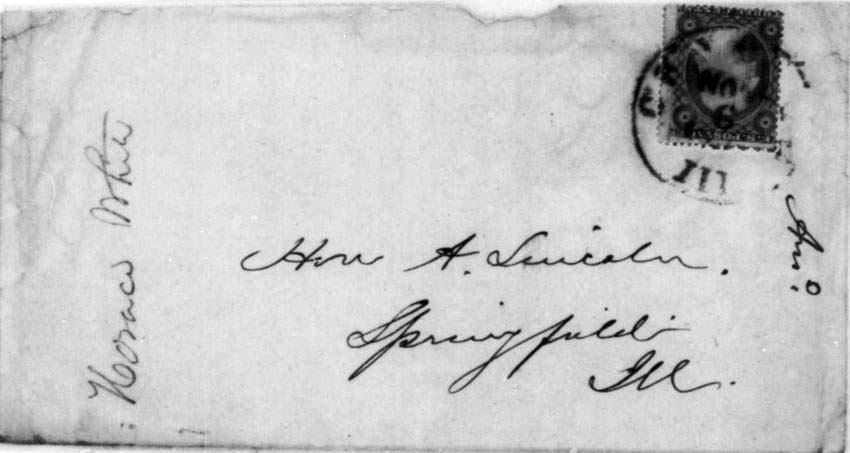 Hon A. Lincoln.
Springfield
Ill.
Horace White
Ans.
NOV
6
Ill